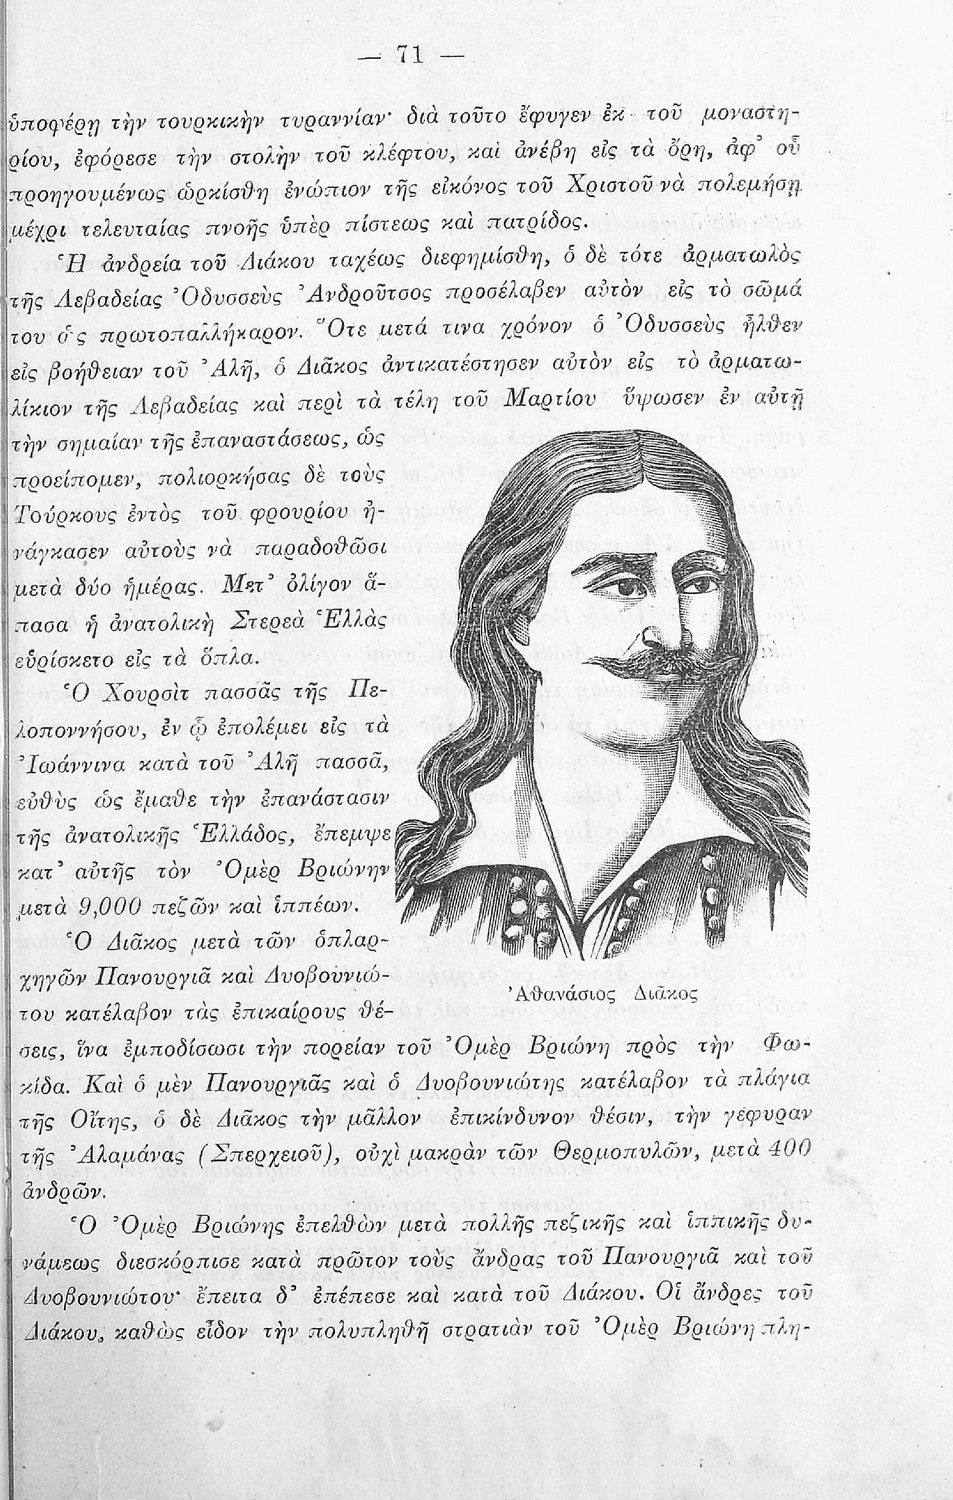 — 71 —
ὑποφέρῃ τὴν τουρκικὴν τυραννίαν· διὰ τοῦτο ἔφυγεν ἐκ τοῦ μοναστη-
ρίου, ἐφόρεσε τὴν στολὴν τοῦ κλέφτου, καὶ ἀνέβη εἰς τὰ ὄρη, ἀφ᾿ οὗ
προηγουμένως ὡρκίσθη ἐνώπιον τῆς εἰκόνος τοῦ Χριστοῦ νὰ πολεμήσῃ
μέχρι τελευταίας πνοῆς ὑπὲρ πίστεως καὶ πατρίδος.
Ἡ ἀνδρεία τοῦ Διάκου ταχέως διεφημίσθη, ὁ δὲ τότε ἁρματωλὸς
τῆς Λεβαδείας Ὀδυσσεὺς Ἀνδροῦτσος προσέλαβεν αὐτὸν εἰς τὸ σῶμά
του ὡς πρωτοπαλλήκαρον. Ὅτε μετά τινα χρόνον ὁ Ὀδυσσεὺς ἦλθεν
εἰς βοήθειαν τοῦ Ἀλῆ, ὁ Διᾶκος ἀντικατέστησεν αὐτὸν εἰς τὸ ἁρματω-
λίκιον τῆς Λεβαδείας καὶ περὶ τὰ τέλη τοῦ Μαρτίου ὕψωσεν ἐν αὐτῇ
τὴν σημαίαν τῆς ἐπαναστάσεως, ὡς
προείπομεν, πολιορκήσας δὲ τοὺς
Τούρκους ἐντὸς τοῦ φρουρίου ἠ-
νάγκασεν αὐτοὺς νὰ παραδοθῶσι
μετὰ δύο ἡμέρας. Μετ᾿ ὀλίγον ἅ-
πασα ἡ ἀνατολικὴ Στερεὰ Ἑλλὰς
εὑρίσκετο εἰς τὰ ὅπλα.
Ὁ Χουρσὶτ πασσᾶς τῆς Πε-
λοποννήσου, ἐν ᾧ ἐπολέμει εἰς τὰ
Ἰωάννινα κατὰ τοῦ Ἀλῆ πασσᾶ,
εὐθὺς ὡς ἔμαθε τὴν ἐπανάστασιν
τῆς ἀνατολικῆς Ἑλλάδος, ἔπεμψε
κατ᾿ αὐτῆς τὸν Ὁμὲρ Βριώνην
μετὰ 9,000 πεζῶν καὶ ἱππέων.
Ὁ Διᾶκος μετὰ τῶν ὁπλαρ-
χηγῶν Πανουργιᾶ καὶ Δυοβουνιώ-
του κατέλαβον τὰς ἐπικαίρους θέ-
σεις, ἵνα ἐμποδίσωσι τὴν πορείαν τοῦ Ὁμὲρ Βριώνη πρὸς τὴν Φω-
κίδα. Καὶ ὁ μὲν Πανουργιᾶς καὶ ὁ Δυοβουνιώτης κατέλαβον τὰ πλάγια
τῆς Οἴτης, ὁ δὲ Διᾶκος τὴν μᾶλλον ἐπικίνδυνον θέσιν, τὴν γέφυραν
τῆς Ἀλαμάνας (Σπερχειοῦ), οὐχὶ μακρὰν τῶν Θερμοπυλῶν, μετὰ 400
ἀνδρῶν.
Ὁ Ὁμὲρ Βριώνης ἐπελθὼν μετὰ πολλῆς πεζικῆς καὶ ἱππικῆς δυ-
νάμεως διεσκόρπισε κατὰ πρῶτον τοὺς ἄνδρας τοῦ Πανουργιᾶ καὶ τοῦ
Δυοβουνιώτου· ἔπειτα δ᾿ ἐπέπεσε καὶ κατὰ τοῦ Διάκου. Οἱ ἄνδρες τοῦ
Διάκου, καθὼς εἶδον τὴν πολυπληθῆ στρατιὰν τοῦ Ὁμὲρ Βριώνη πλη-
Ἀθανάσιος Διᾶκος